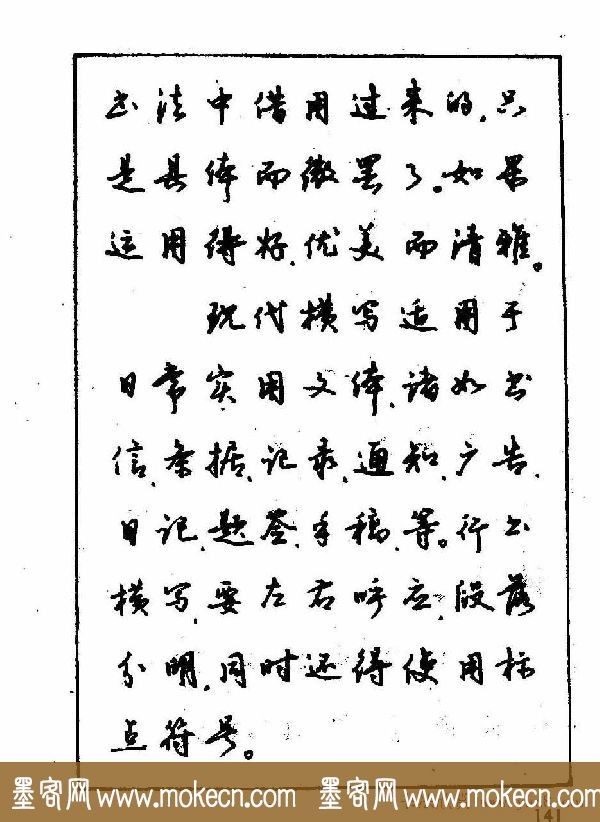 书法中借用过来的,只
是具体而微罢了。如果
运用得好,优美而清雅。
现代横写适用于
日常实用文体,诸如书
信、条据、记录、通知、广告、
日记、题签、手稿、等。行书
横写,要左右呼应,段落
分明,同时还得使用标
点符号。
墨客网 www.mokecn.com 墨客网 www.mokecn.com
141